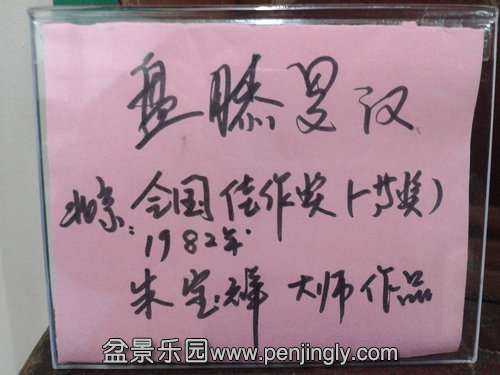 盘膝罗汉
北京:全国佳作奖(一等奖)
1982年
朱宝祥 大师作品
盆景乐园www.penjingly.com